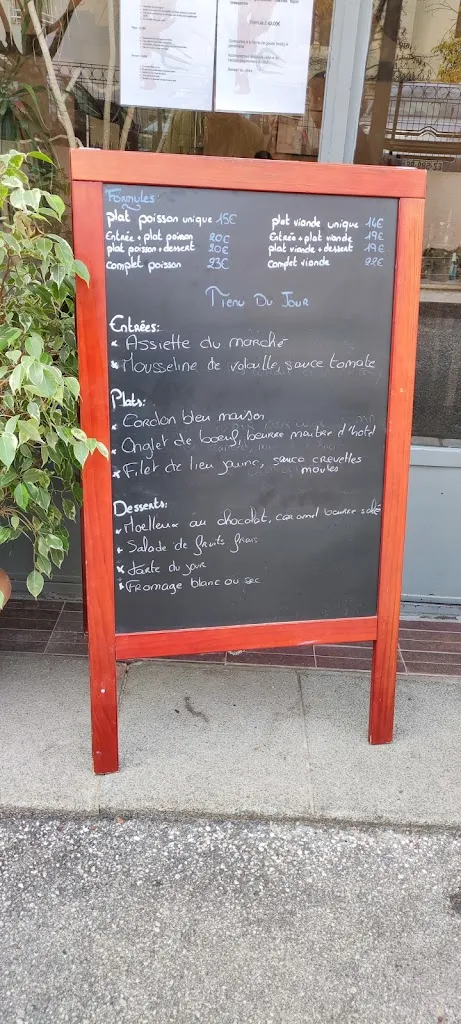 Formule 2 40,00€
Formules:
plat poisson unique 15€
Entrée + plat poisson 20€
plat poisson + dessert 20€
complet poisson 23€
plat viande unique 14€
Entrée + plat viande 19€
plat viande + dessert 19€
complet viande 22€
Menu Du Jour
Entrées:
* Assiette du marché
* Mousseline de volaille, sauce tomate
Plats:
* Cordon bleu maison
* Onglet de boeuf, beurre maitre d'hotel
* Filet de lieu jaune, sauce crevettes
moules
Desserts:
* Moelleux au chocolat, caramel beurre salé
* Salade de fruits frais
* tarte du jour
* Fromage blanc ou sec